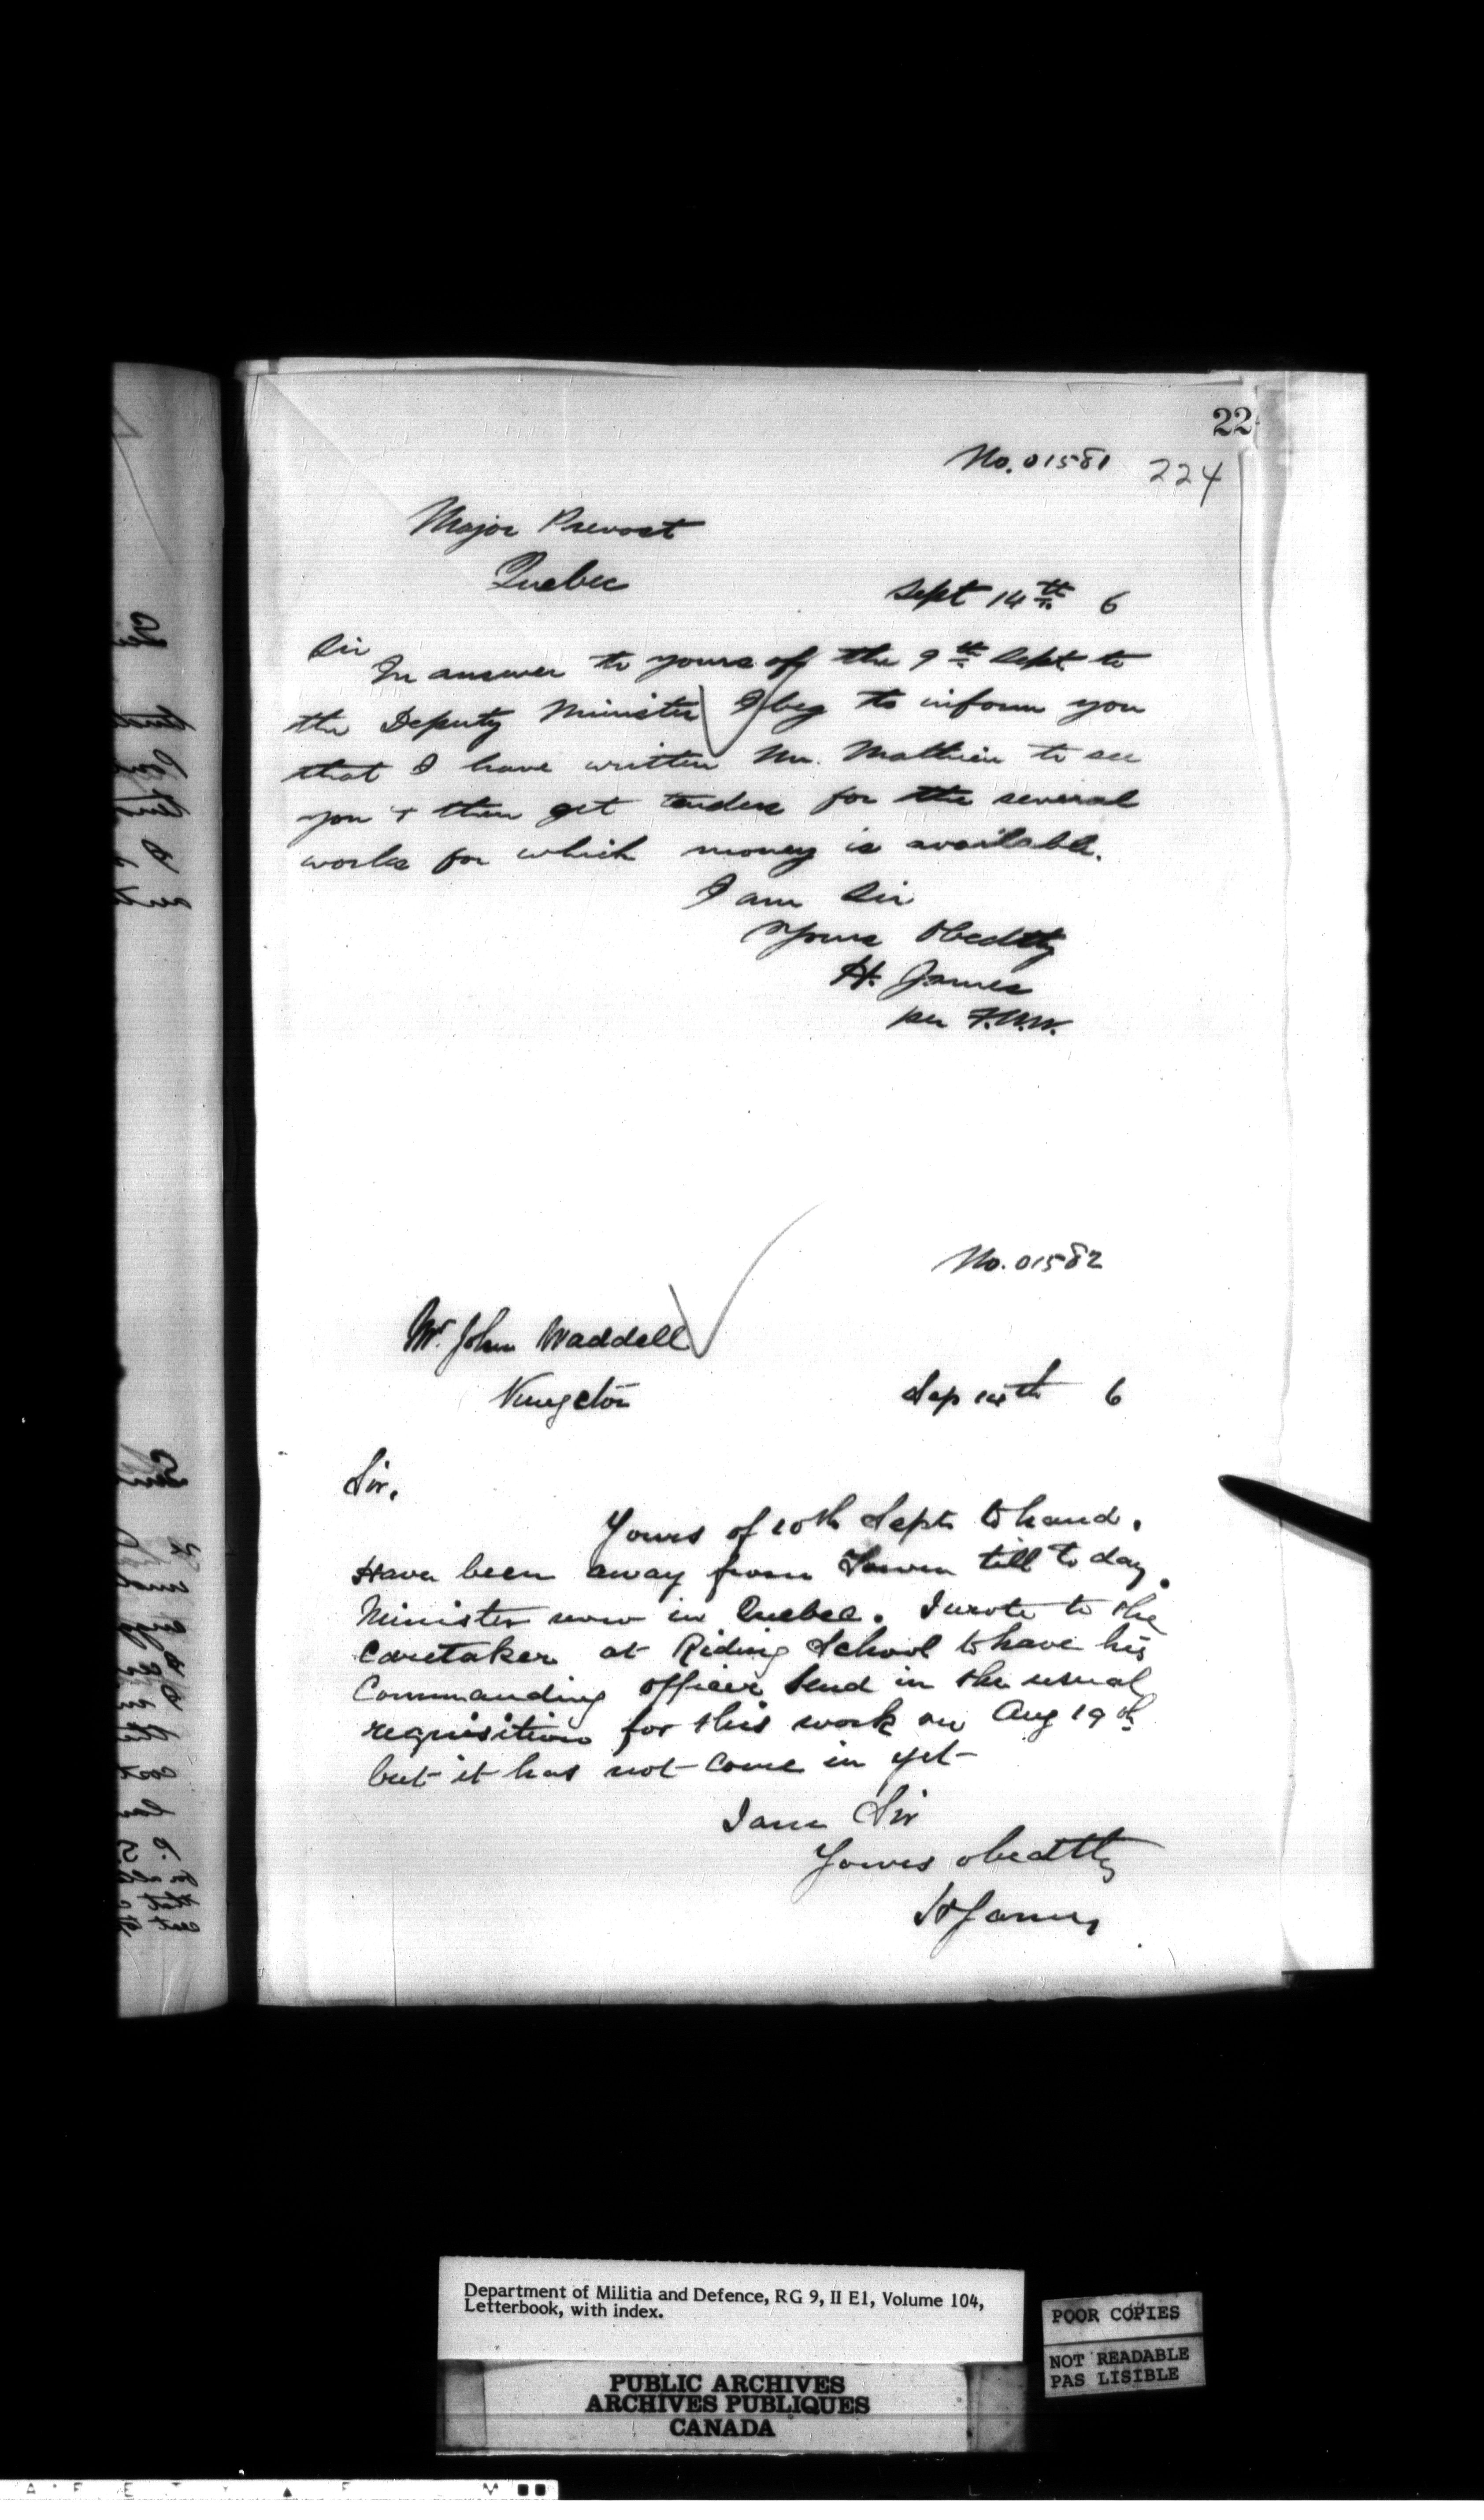 22
No. 01581 224
Major Prevost
Quebec
Sept 14th 6
Sir
In answer to yours of the 9th Sept. to
the Deputy Minister I beg to inform you
that I have written Mr. Mathieu to see
you & then get tenders for the several
works for which money is available.
I am Sir
Yours Obedtly
H. James
per F.W.W.
No. 01582
Mr. John Waddell
Kingston
Sep 14th 6
Sir,
Yours of 10th Sept to hand.
Have been away from Town till to day.
Minister now in Quebec. I wrote to the
Caretaker at Riding School to have his
Commanding officer send in the usual
requisition for this work on Aug 19th
but it has not come in yet
I am Sir
Yours obedtly
H James
Department of Militia and Defence, RG 9, II E1, Volume 104,
Letterbook, with index.
POOR COPIES
NOT READABLE
PAS LISIBLE
PUBLIC ARCHIVES
ARCHIVES PUBLIQUES
CANADA